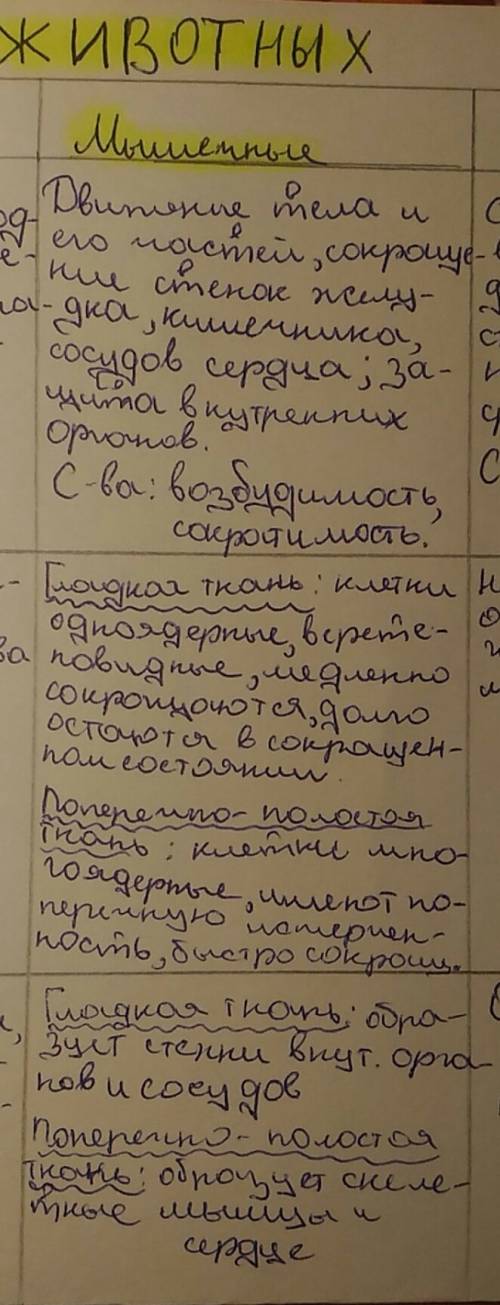 ЖИВОТНЫХ
Мышечные
Движение тела и
его частей, сокраще-
ние стенок желу-
дка, кишечника,
сосудов сердца; за-
щита внутренних
органов.
С-ва: возбудимость,
сократимость.
Гладкая ткань: клетки
одноядерные,верете-
новидные, медленно
сокращаются, долго
остаются в сокращен-
ном состоянии.
Поперечно-полостая
ткань: клетки мно-
гоядерные, имеют по-
перечную исчерчен-
ность, быстро сокращ.
Гладкая ткань: обра-
зует стенки внут. орга-
нов и сосудов
Поперечно-полостая
ткань: образует скеле-
тные мышцы и
сердце